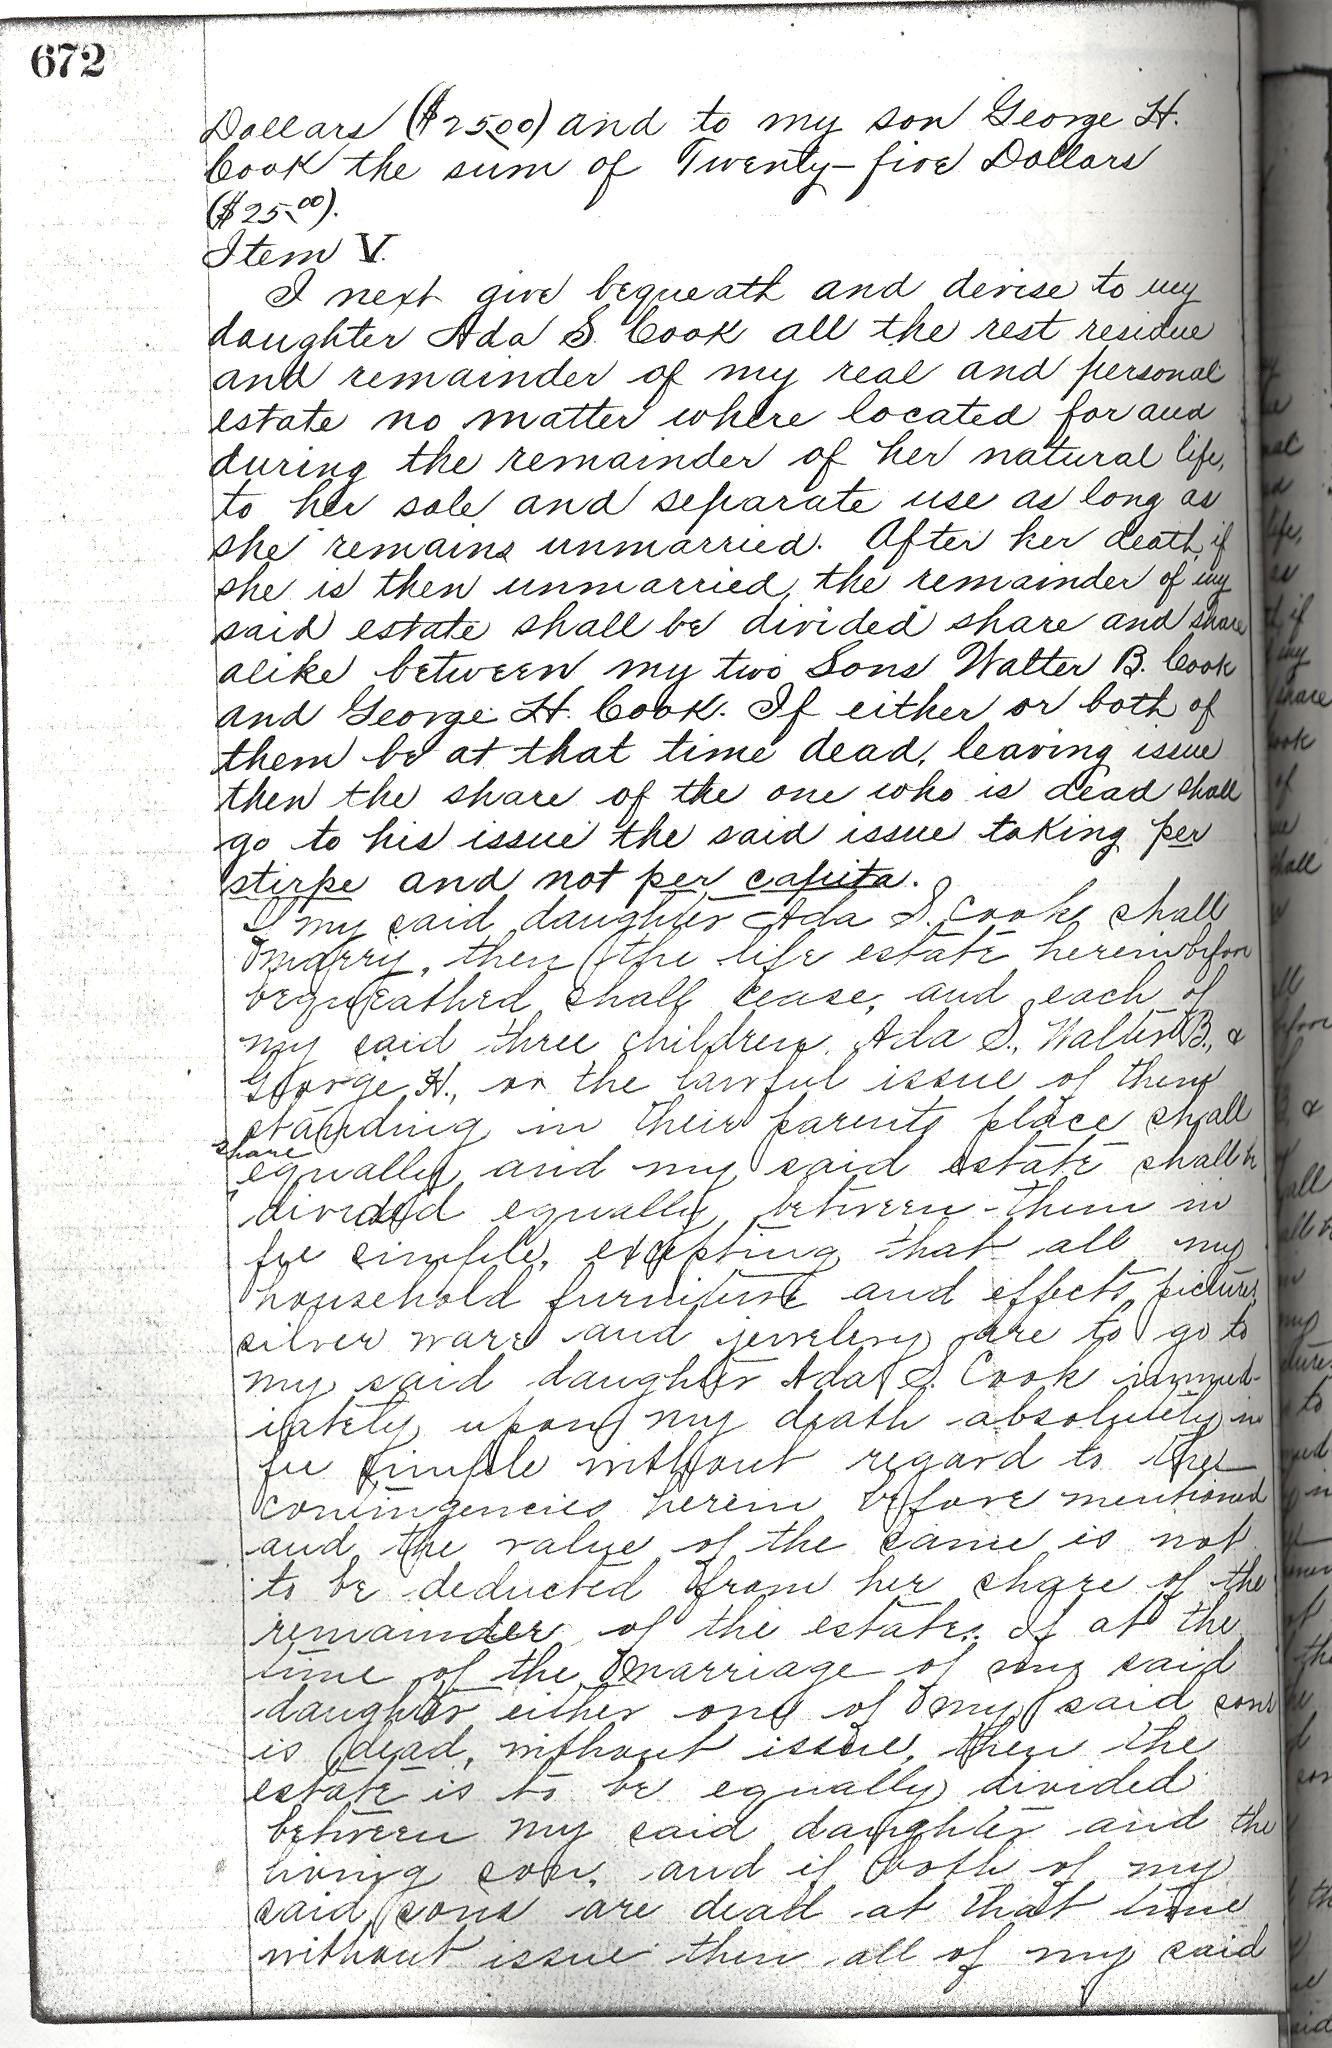 672
Dollars ($25.00) and to my son George H.
Cook the sum of Twenty-five Dollars
($25.00).
Item V.
I next give bequeath and devise to my
daughter Ada S. Cook all the rest residue
and remainder of my real and personal
estate no matter where located for and
during the remainder of her natural life,
to her sole and separate use as long as
she remains unmarried. After her death, if
she is then unmarried, the remainder of my
said estate shall be divided share and share
alike between my two Sons Walter B. Cook
and George H. Cook. If either or both of
them be at that time dead, leaving issue
then the share of the one who is dead shall
go to his issue the said issue taking per
stirpe and not per capita.
If my said daughter Ada S. Cook shall
marry, then the life estate hereinbefore
bequeathed shall cease, and each of
my said three children, Ada S., Walter B., &
George H., or the lawful issue of them
standing in their parents place shall
share
equally and my said estate shall be
divided equally between them in
fee simple, excepting that all my
household furniture and effects, pictures,
silver ware and jewelery are to go to
my said daughter Ada S. Cook immed-
iately upon my death absolutely in
fee simple without regard to the
contingencies herein before mentioned
and the value of the same is not
to be deducted from her share of the
remainder of the estate. If at the
time of the marriage of my said
daughter either one of my said sons
is dead, without issue, then the
estate is to be equally divided
between my said daughter and the
living son, and if both of my
said sons are dead at that time
without issue then all of my said